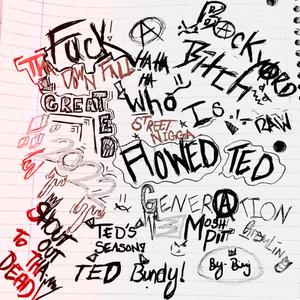 Fuck A
BACKYARD
THE DOWN FALL
HA HA HA
Bitch
GREAT TED
Who Is
RAW
STREET NIGGA
FLOWED TED
GENERATION
SHOUT OUT TO THA DEAD
TED'S SEASON!
MOSH PIT
GREMLIN
TED Bundy!
By-